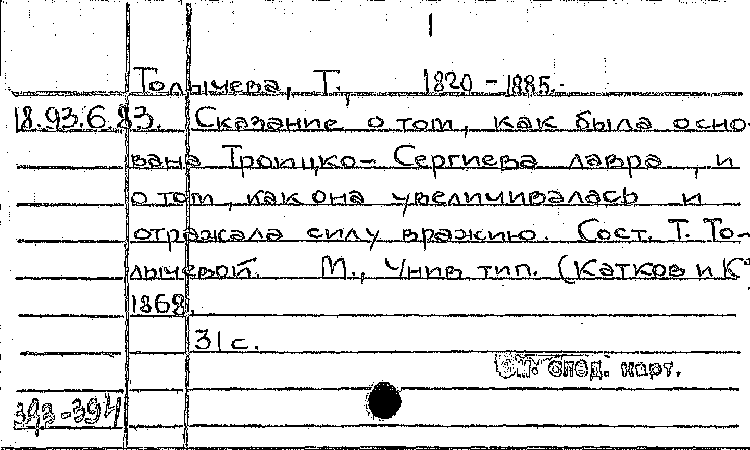 Толычева, Т., 1820-1885.-
18.93.6.83. Сказание о том, как была осно-
вана Троицко-Сергиева лавра, и
о том, как она увеличивалась и
отражала силу вражию. Сост. Т. То-
лычевой. М., Унив тип. (Катков и К°
1868.
31 с.
См. след. карт.
393-394